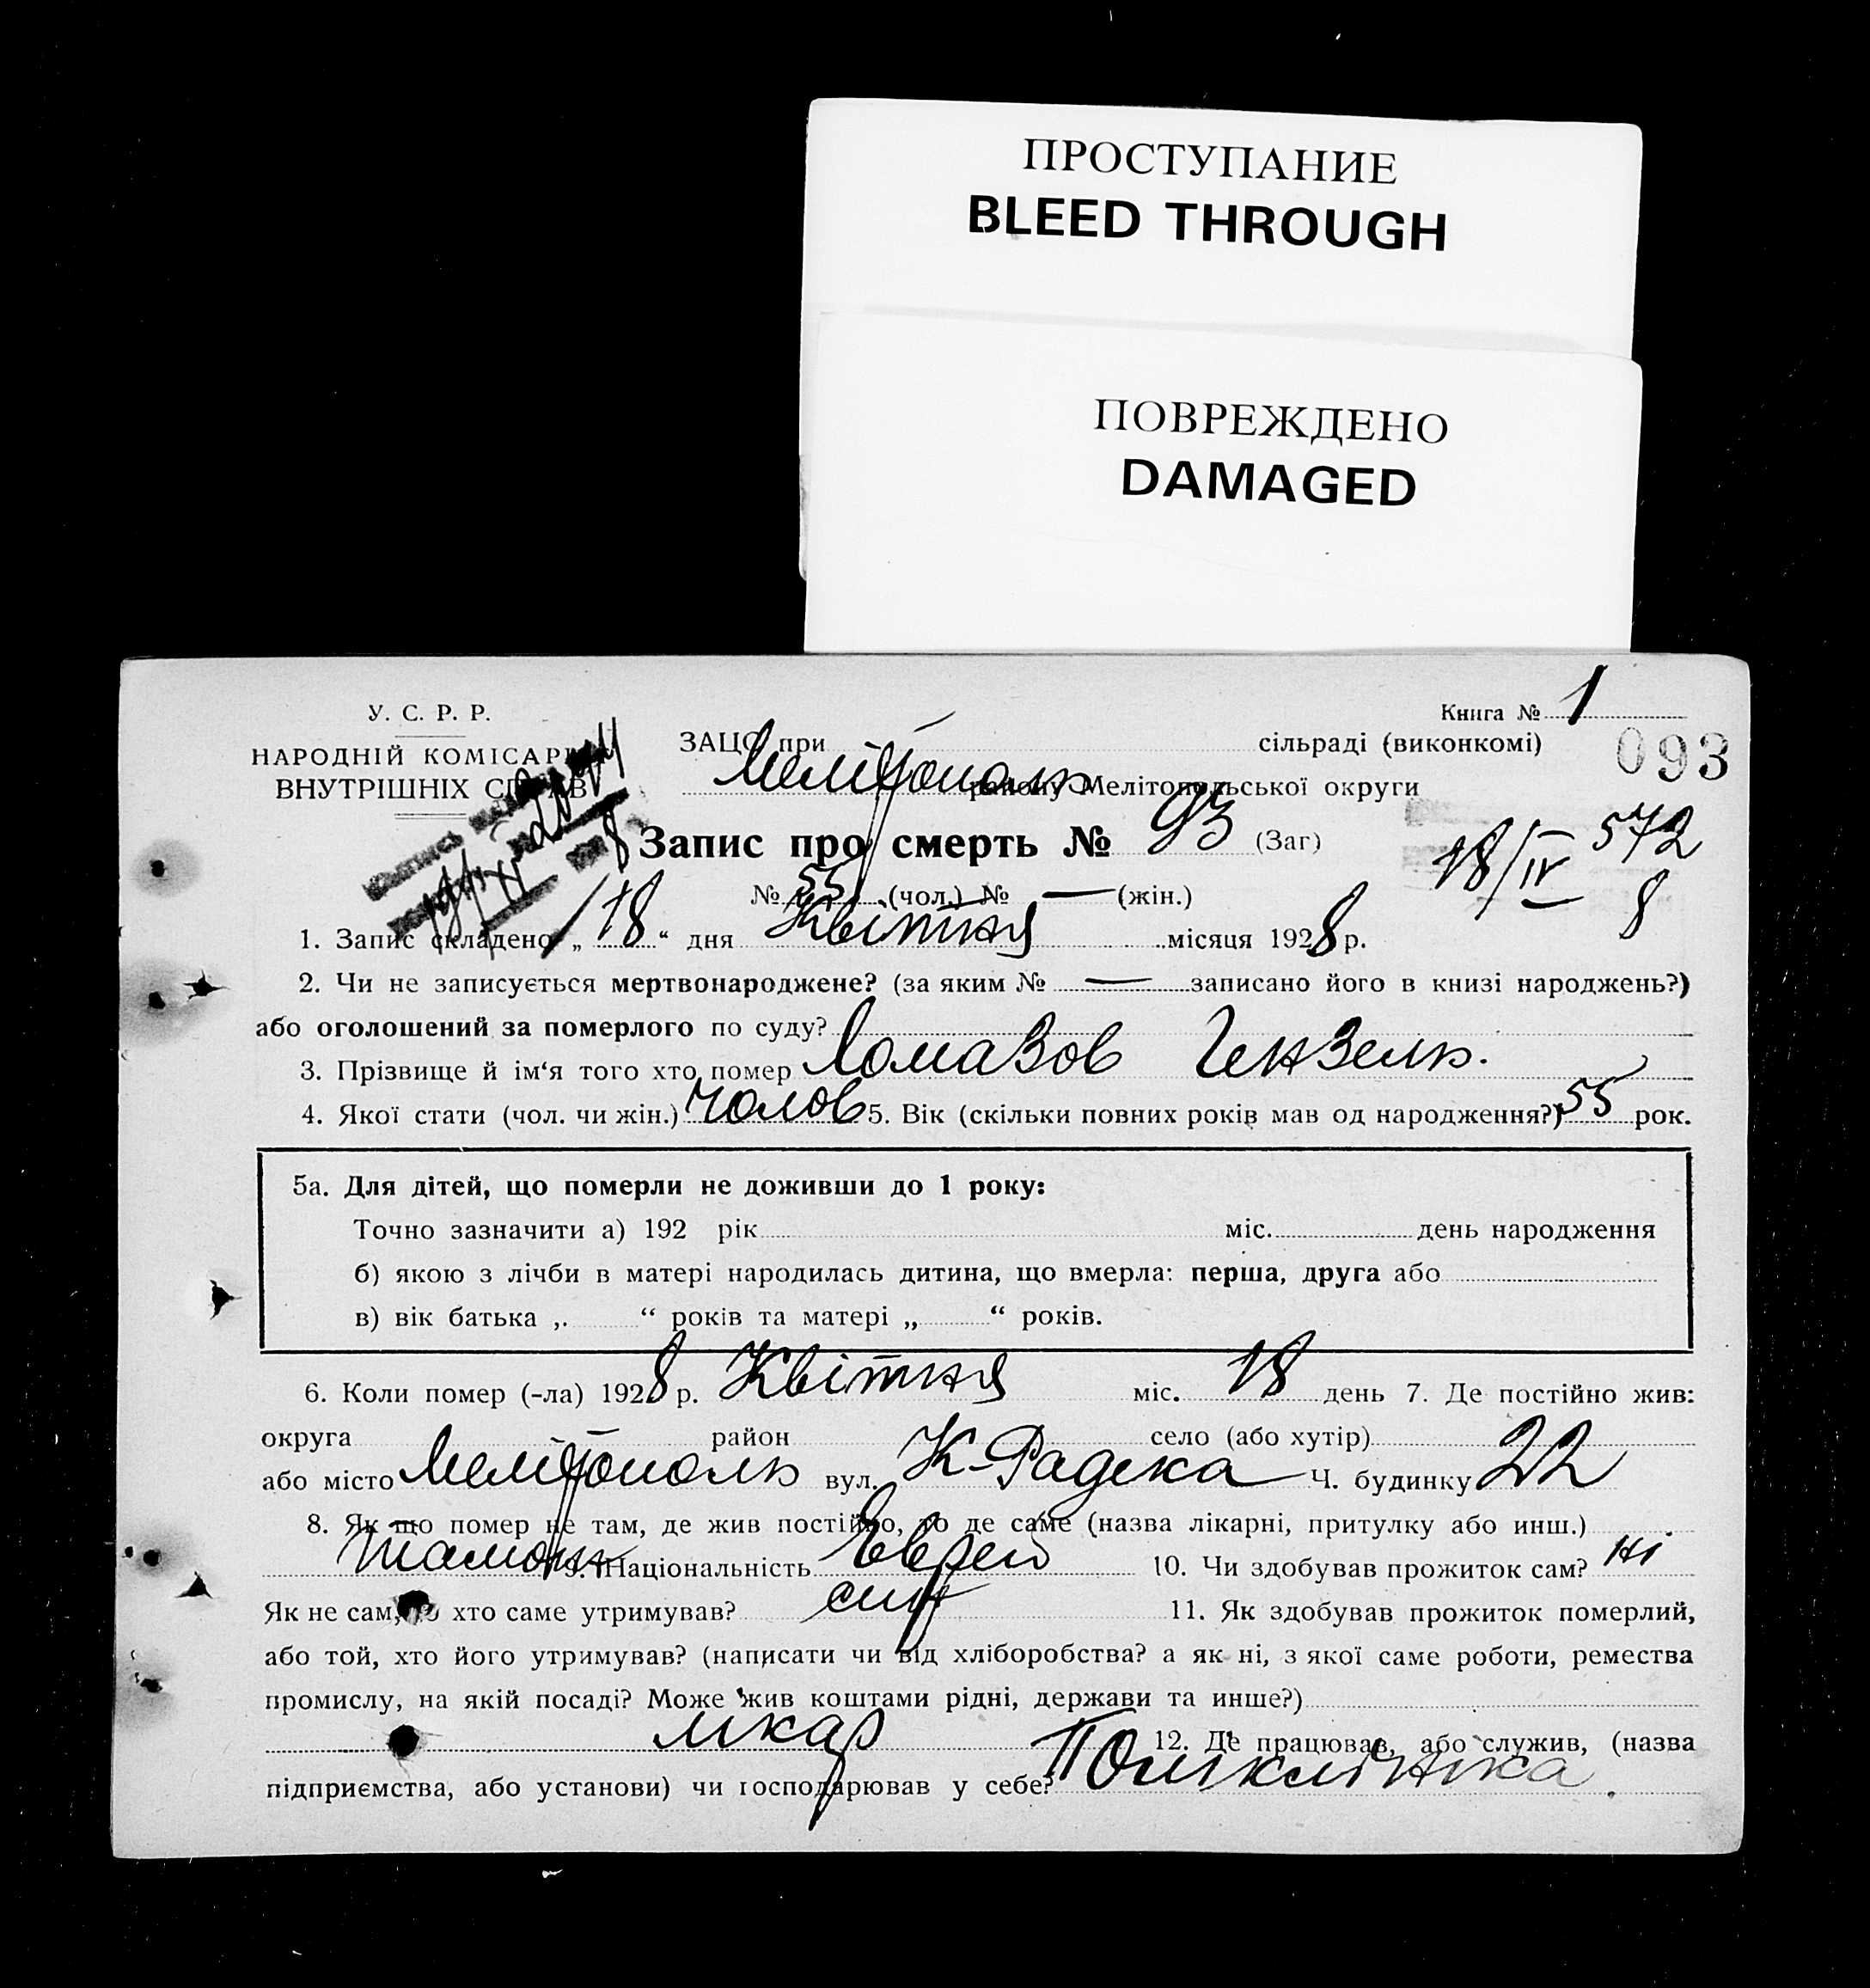 ПРОСТУПАНИЕ
BLEED THROUGH
ПОВРЕЖДЕНО
DAMAGED
У. С. Р. Р.
НАРОДНІЙ КОМІСАРІЯТ
ВНУТРІШНІХ СПРАВ
Книга № 1
ЗАЦС при сільраді (виконкомі)
093
Мелітополь району Мелітопольської округи
Запис про смерть № 93 (Заг)
18/IV 572
8
№ 55 (чол.) № — (жін.)
1. Запис складено „ 18 “ дня Квітня місяця 1928 р.
2. Чи не записується мертвонароджене? (за яким № — записано його в книзі народжень?)
або оголошений за померлого по суду?
3. Прізвище й ім‘я того хто помер Ломазов Гензель.
4. Якої стати (чол. чи жін.) Чолов 5. Вік (скільки повних років мав од народження?) 55 рок.
5а. Для дітей, що померли не доживши до 1 року:
Точно зазначити а) 192 рік міс. день народження
б) якою з лічби в матері народилась дитина, що вмерла: перша, друга або
в) вік батька „ “ років та матері „ “ років.
6. Коли помер (-ла) 1928 р. Квітня міс. 18 день 7. Де постійно жив:
округа район село (або хутір)
або місто Мелітополь вул. К-Радека Ч. будинку 22
8. Як що помер не там, де жив постійно, то де саме (назва лікарні, притулку або инш.)
9. Національність Еврей 10. Чи здобував прожиток сам? ні
Як не сам, то хто саме утримував? син 11. Як здобував прожиток померлий,
або той, хто його утримував? (написати чи від хліборобства? а як ні, з якої саме роботи, ремества
промислу, на якій посаді? Може жив коштами рідні, держави та инше?)
лікар 12. Де працював, або служив, (назва
підприємства, або установи) чи господарював у себе? Поликлініка